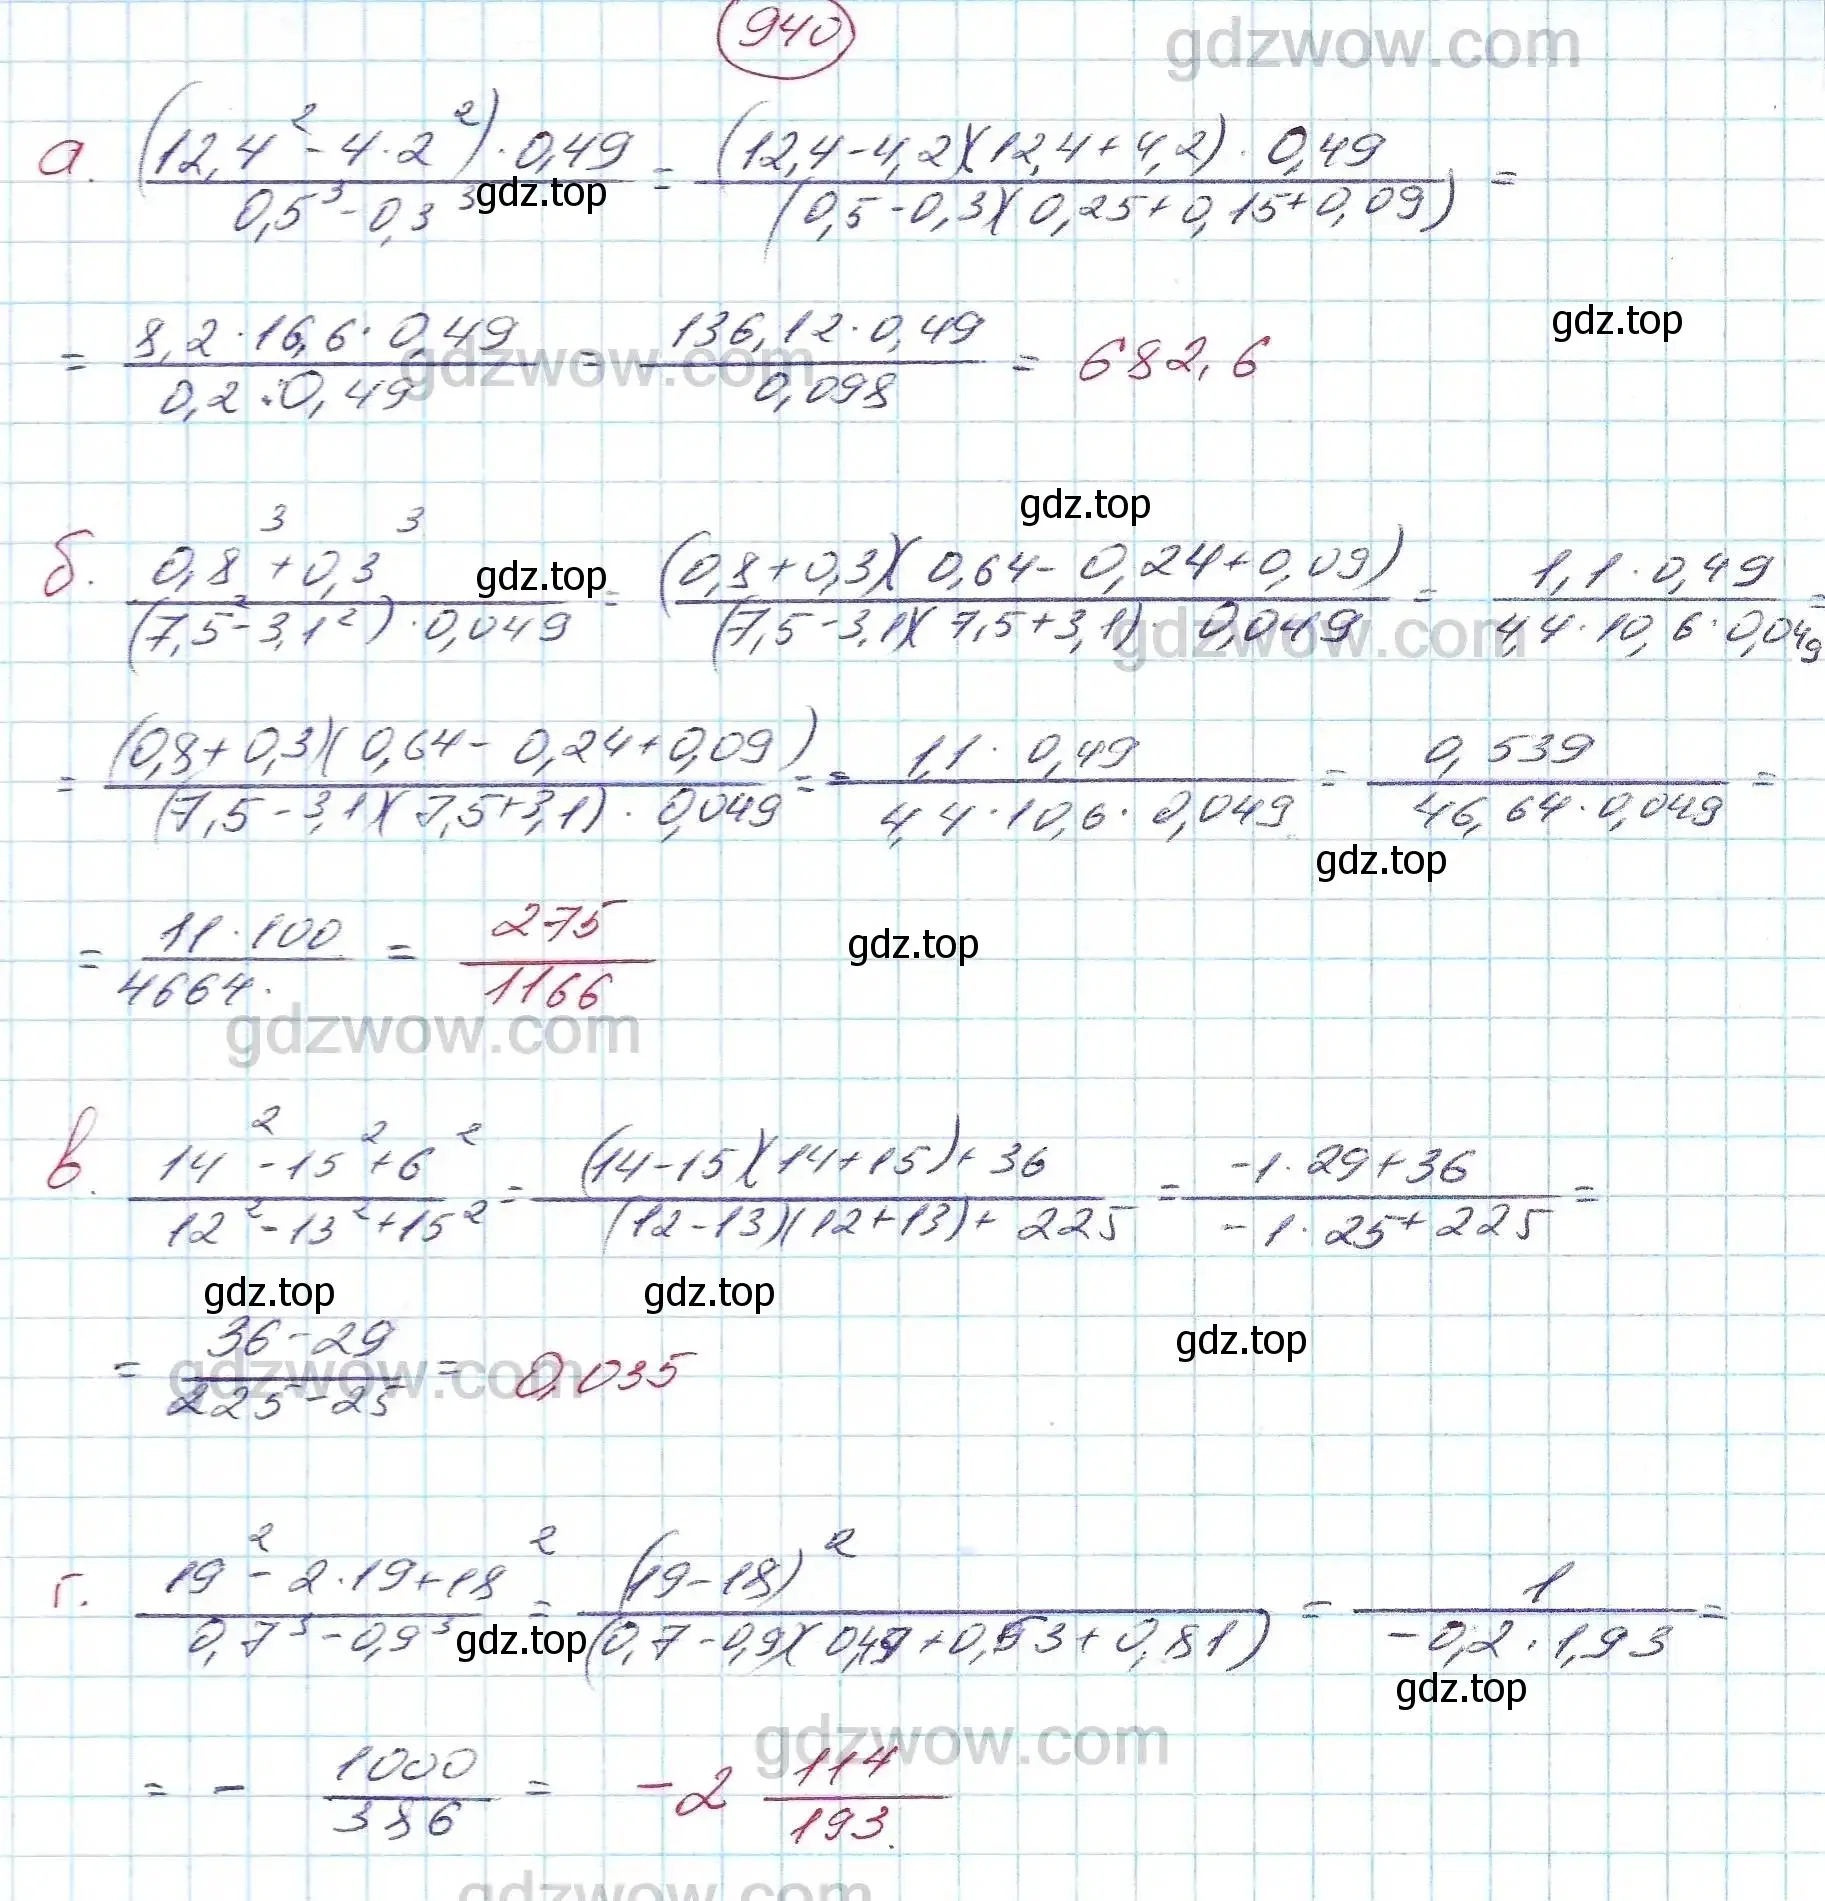 940
gdzwow.com
а. (12,4² - 4·2²)·0,49 / 0,5³ - 0,3³ = (12,4-4,2)(12,4+4,2)·0,49 / (0,5-0,3)(0,25+0,15+0,09) =
gdz.top
gdz.top
= 8,2·16,6·0,49 / 0,2·0,49 = 136,12·0,49 / 0,098 = 682,6
gdzwow.com
gdz.top
б. 0,8³+0,3³ / (7,5²-3,1²)·0,049 = (0,8+0,3)(0,64-0,24+0,09) / (7,5-3,1)(7,5+3,1)·0,049 = 1,1·0,49 / 4,4·10,6·0,049 =
gdz.top
gdzwow.com
= (0,8+0,3)(0,64-0,24+0,09) / (7,5-3,1)(7,5+3,1)·0,049 = = 1,1·0,49 / 4,4·10,6·0,049 = 0,539 / 46,64·0,049 =
gdz.top
= 11·100 / 4664. = 275 / 1166
gdz.top
gdzwow.com
в. 14²-15²+6² / 12²-13²+15² = (14-15)(14+15)+36 / (12-13)(12+13)+225 = -1·29+36 / -1·25+225 =
gdz.top
gdz.top
gdz.top
= 36-29 / 225-25 = 0,035
gdzwow.com
г. 19²-2·19+18² / 0,7³-0,9³ = (19-18)² / (0,7-0,9)(0,49+0,63+0,81) = 1 / -0,2·1,93 =
gdz.top
gdz.top
gdzwow.com
= - 1000 / 386 = -2 114 / 193.
gdzwow.com